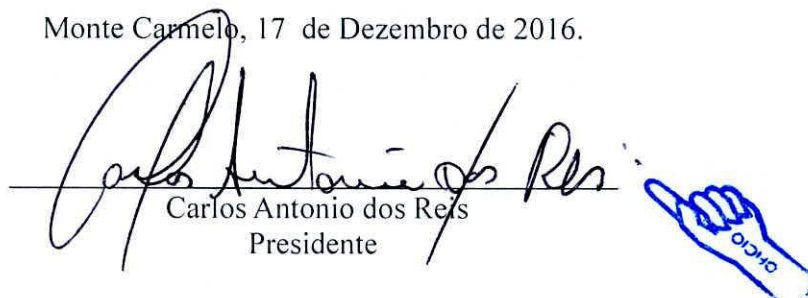 Monte Carmelo, 17 de Dezembro de 2016.
Carlos Antonio dos Reis
Carlos Antonio dos Reis
Presidente
OFICIO